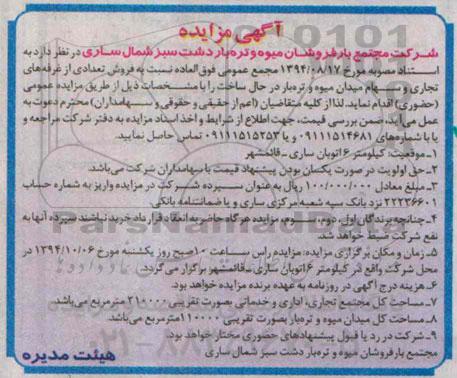 آگهی مزایده
شرکت مجتمع بارفروشان میوه و تره‌بار دشت سبز شمال ساری در نظر دارد به
استناد مصوبه مورخ ۱۳۹۴/۰۸/۱۷ مجمع عمومی فوق العاده نسبت به فروش تعدادی از غرفه‌های
تجاری و سهام میدان میوه و تره‌بار در حال ساخت را با مشخصات ذیل از طریق مزایده عمومی
(حضوری) اقدام نماید. لذا از کلیه متقاضیان (اعم از حقیقی و حقوقی و سهامداران) محترم دعوت به
عمل می‌آید، ضمن بررسی قیمت، جهت اطلاع از شرایط و اخذ اسناد مزایده به دفتر شرکت مراجعه و
یا با شماره‌های ۰۹۱۱۱۵۱۴۶۸۱ و یا ۰۹۱۱۱۵۱۵۲۵۳ تماس حاصل نمایید.
۱_موقعیت: کیلومتر ۶ اتوبان ساری _ قائمشهر
۲_حق اولویت در صورت یکسان بودن پیشنهاد قیمت با سهامداران شرکت می‌باشد.
۳_مبلغ معادل ۱۰۰/۰۰۰/۰۰۰ ریال به عنوان سپرده شرکت در مزایده واریز به شماره حساب
۲۲۲۳۶۶۰۱ نزد بانک سپه شعبه مرکزی ساری و یا ضمانتنامه بانکی.
۴_چنانچه برندگان اول، دوم، سوم، مزایده هرگاه حاضر به انعقاد قرارداد خرید نباشند سپرده آنها به
نفع شرکت ضبط خواهد شد.
۵_زمان و مکان برگزاری مزایده: مزایده راس ساعت ۱۰ صبح روز یکشنبه مورخ ۱۳۹۴/۱۰/۰۶ در
محل شرکت واقع در کیلومتر ۶ اتوبان ساری _ قائمشهر برگزار می‌گردد.
۶_هزینه درج آگهی در روزنامه به عهده برنده مزایده خواهد بود.
۷_مساحت کل مجتمع تجاری، اداری و خدماتی بصورت تقریبی ۲۱۰۰۰۰ مترمربع می‌باشد.
۸_مساحت کل میدان میوه و تره‌بار بصورت تقریبی ۱۱۰۰۰۰ مترمربع می‌باشد.
۹_شرکت در رد یا قبول پیشنهادهای حضوری مختار خواهد بود.
مجتمع بارفروشان میوه و تره‌بار دشت سبز شمال ساری
هیئت مدیره